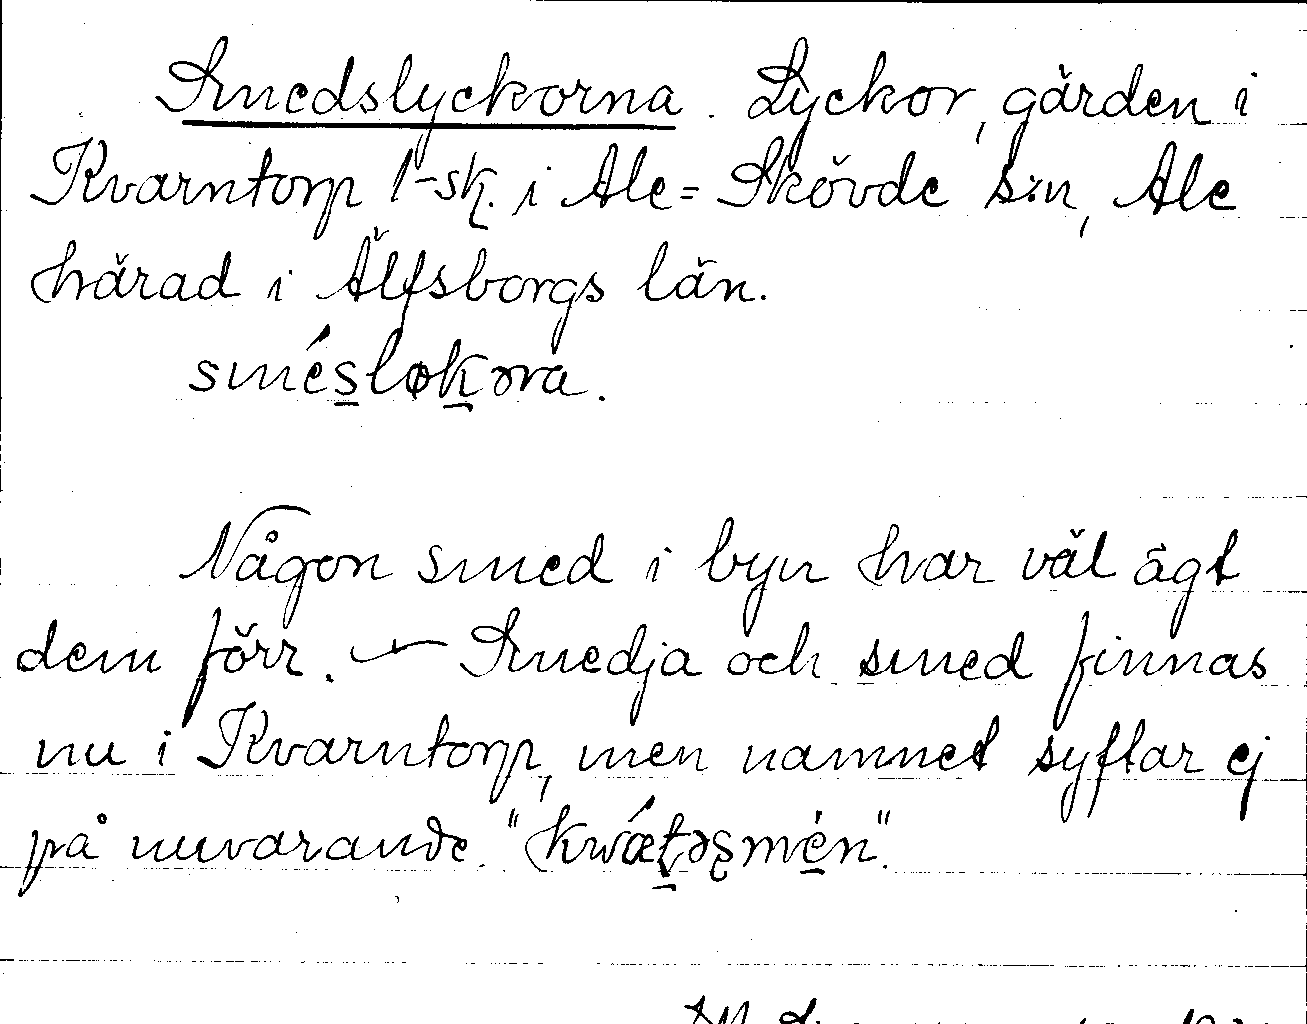 Smedslyckorna. Lyckor, gärden i
Kvarntorp 1-sk. i Ale=Skövde s:n, Ale
härad i Älfsborgs län.
smésløkǝra.
Någon smed i byn har väl ägt
dem förr. — Smedja och smed finnas
nu i Kvarntorp, men namnet syftar ej
på nuvarande "kwǽtǝʂmén".